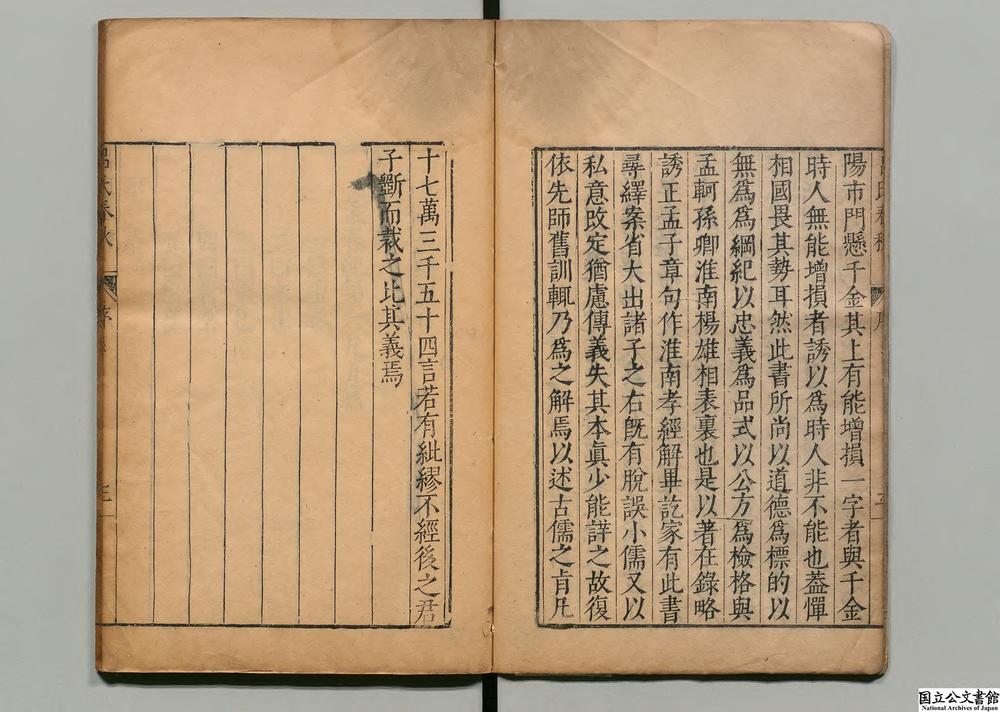 陽市門懸千金其上有能增損一字者與千金
時人無能增損者誘以爲時人非不能也葢憚
相國畏其勢耳然此書所尚以道德爲標的以
無爲爲綱紀以忠義爲品式以公方爲檢格與
孟軻孫卿淮南楊雄相表裏也是以著在錄略
誘正孟子章句作淮南孝經解畢訖家有此書
尋繹案省大出諸子之右旣有脫誤小儒又以
私意改定猶慮傳義失其本眞少能詳之故復
依先師舊訓輒乃爲之解焉以述古儒之㫖凡
十七萬三千五十四言若有紕繆不經後之君
子斷而裁之比其義焉
呂氏春秋
序
国立公文書館
National Archives of Japan